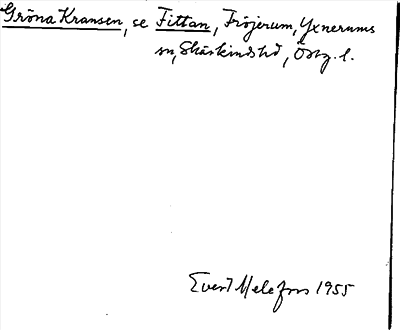 Gröna Kransen, se Fittan, Fröjerum, Yxnerums
sn, Skärkinds hd, Östg. l.
Evert Melefors 1955